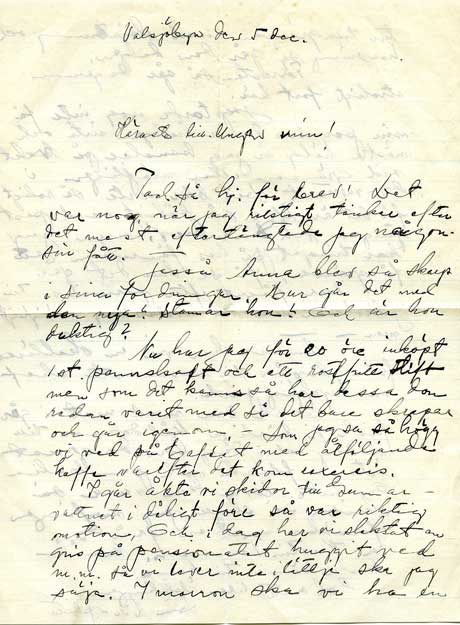 Valsjöbyn den 5 dec.
Käraste lill-Ungen min!
Tack så hj. för brev! Det
var nog när jag riktigt tänker efter
det mest efterlängtade jag någon-
sin fått. —
Jesså Anna blev så skarp
i sina fordringar. Hur går det med
den nya? Stannar hon? Och är hon
duktig?
Nu har jag för 20 öre inköpt
1 st. pennskaft och ett rostfritt stift
men som det känns så har dessa don
redan varit med si det bara skrapar
och går igenom. — Som jag sa så högg
vi ved på Gafset med åtföljande
kaffe varefter det kom
I går åkte vi skidor till
vattnet i dåligt före så var riktig
motion. Och i dag har vi slaktat en
gris på pensionatet huggit ved
m.m. så vi lever inte i lättje ska jag
säja. I morron ska vi ha en